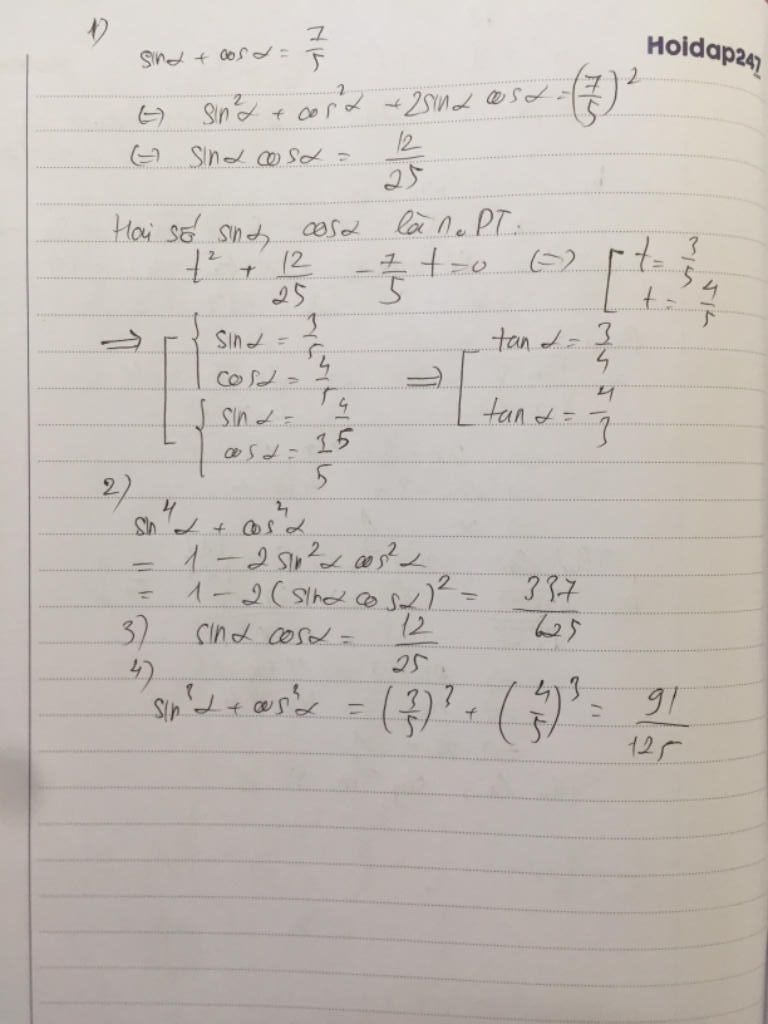 Hoidap247
1)
sinα + cosα = 7/5
(=) sin²α + cos²α + 2sinα cosα = (7/5)²
(=) sinα cosα = 12/25
Hai số sinα, cosα là n₀ PT:
t² + 12/25 - 7/5 t = 0 (=) [ t = 3/5
t = 4/5
=> [ { sinα = 3/5
cosα = 4/5
{ sinα = 4/5
cosα = 3/5
=> [ tanα = 3/4
tanα = 4/3
2)
sin⁴α + cos⁴α
= 1 - 2sin²α cos²α
= 1 - 2(sinα cosα)² = 337/625
3) sinα cosα = 12/25
4)
sin³α + cos³α = (3/5)³ + (4/5)³ = 91/125